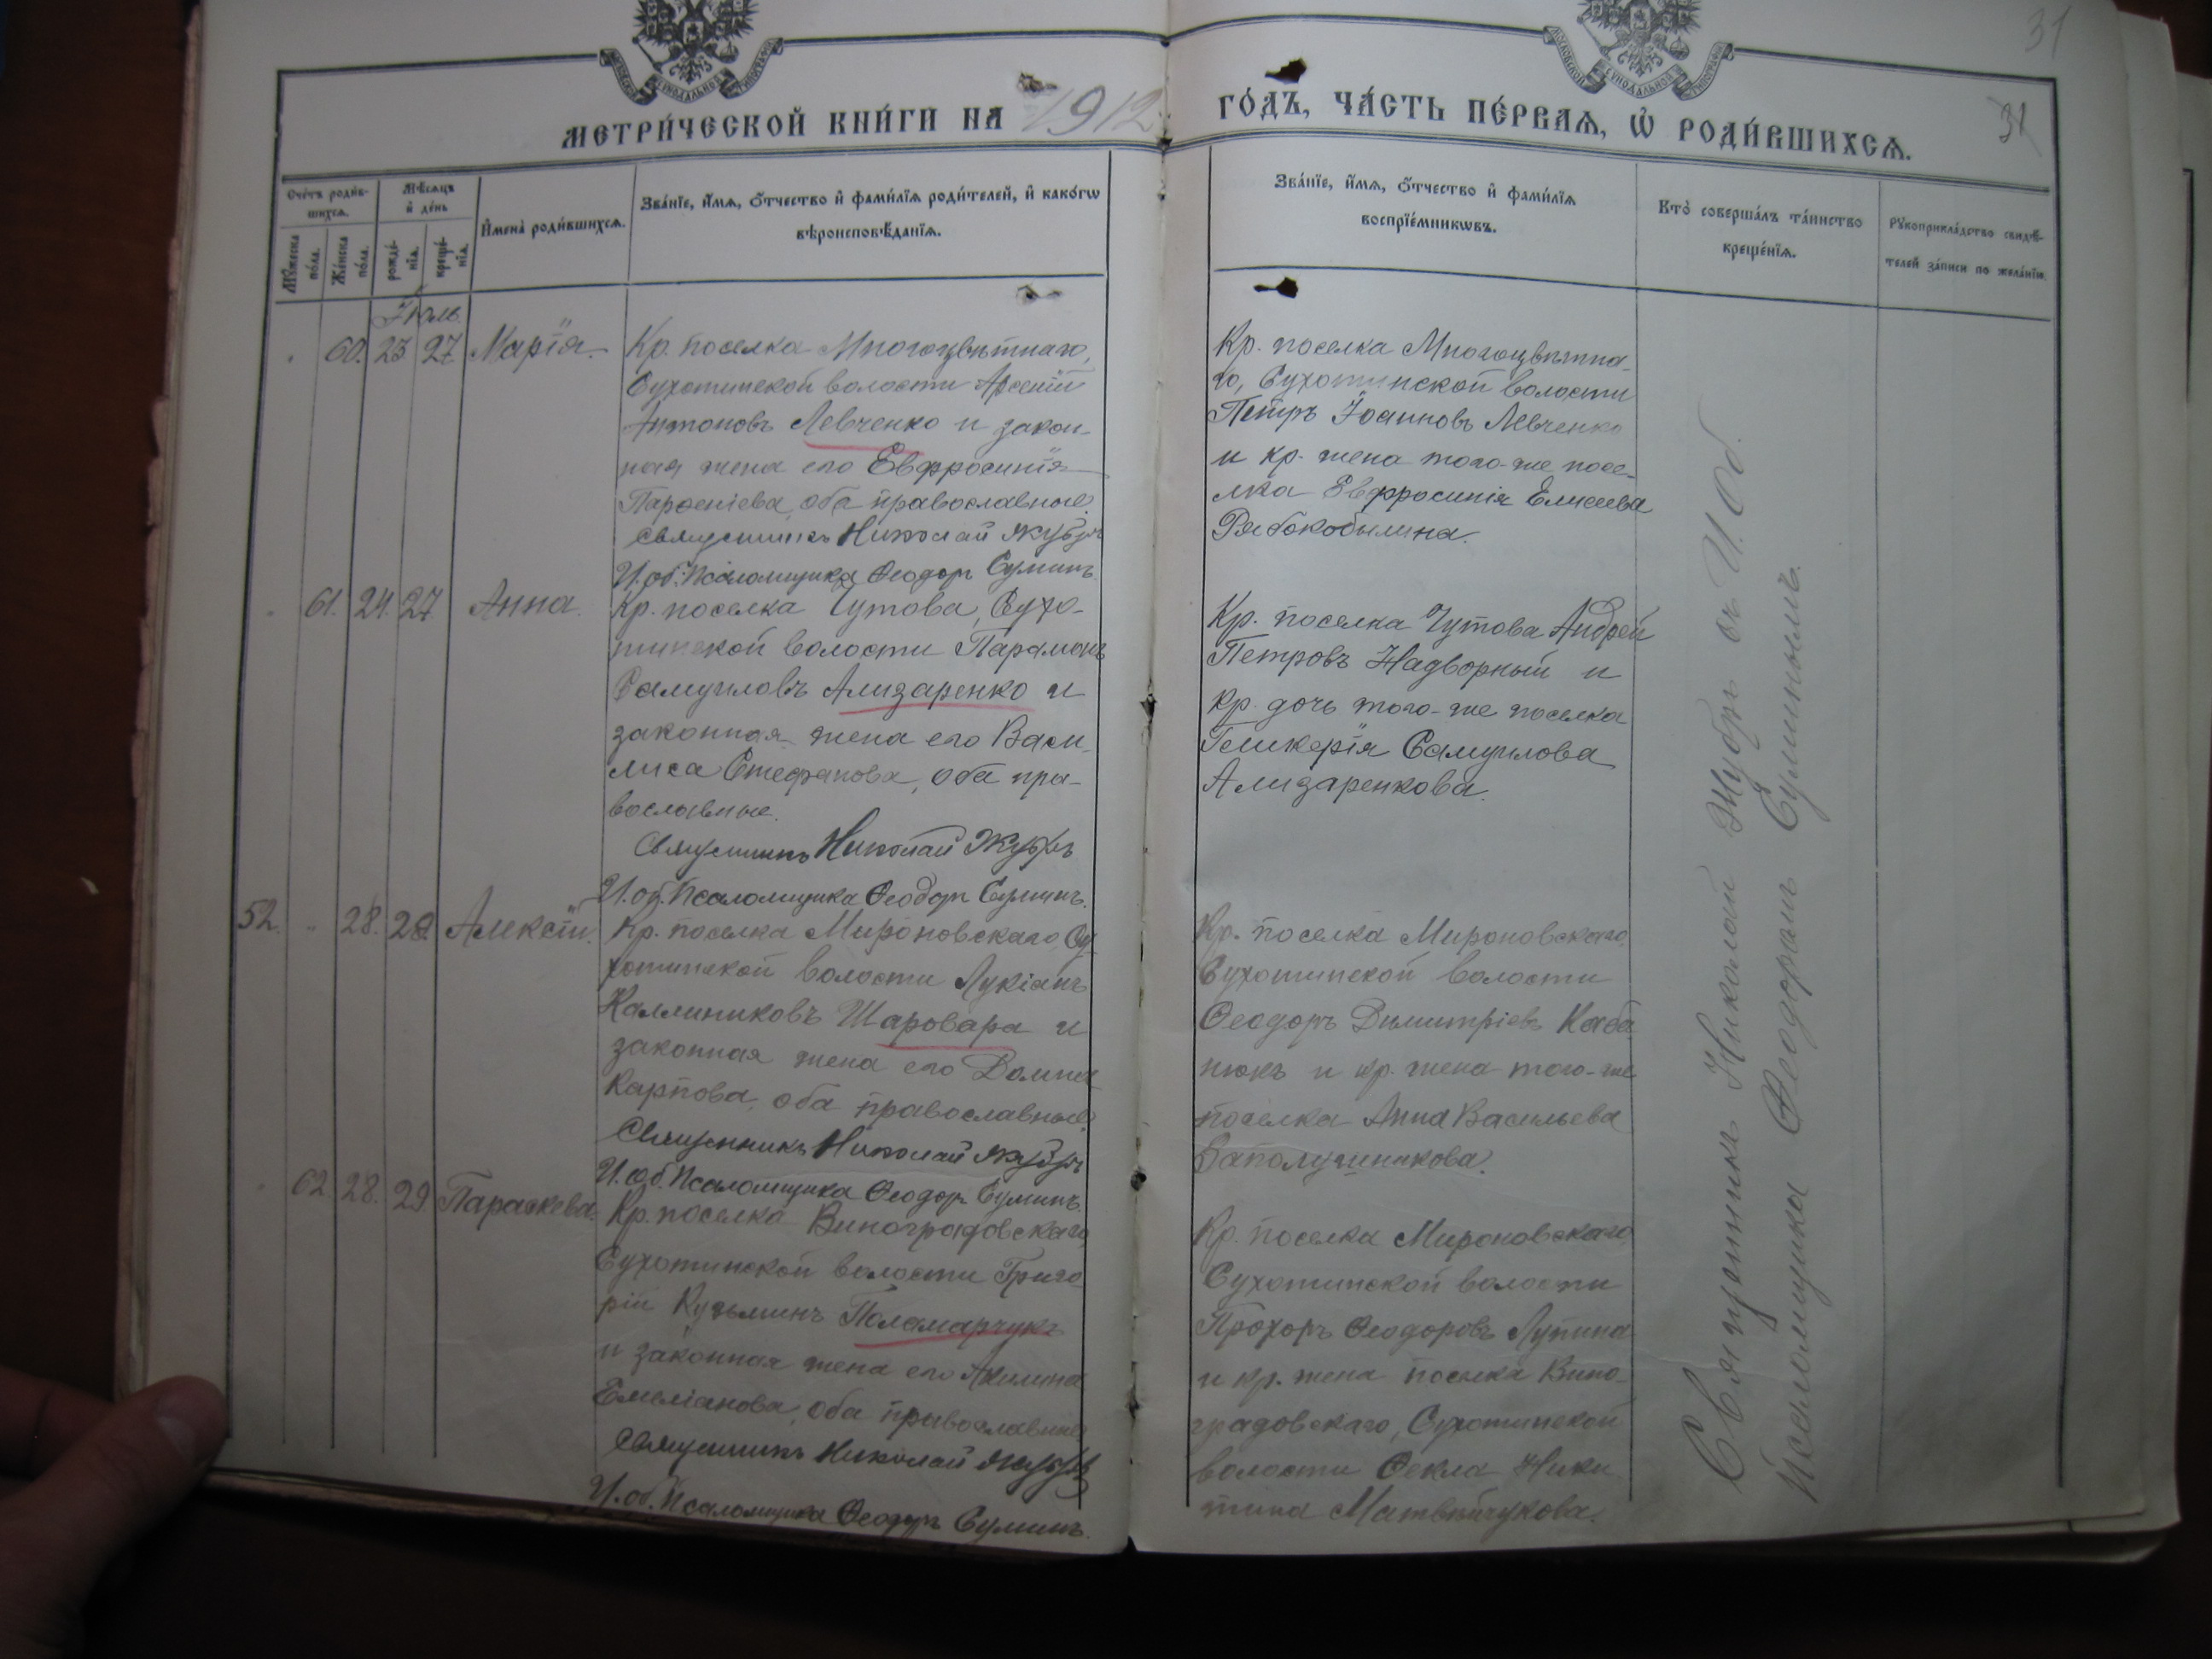 31
МЕТРИ́ЧЕСКОЙ КНИ́ГИ НА 1912 ГО́ДЪ, ЧА́СТЬ ПЕ́РВАѦ, Ѽ РОДИ́ВШИХСѦ.
31
Сче́тъ роди́в-
шихсѧ.
Мꙋ́жеска
по́ла.
Же́нска
по́ла.
Мѣ́сѧцъ
и҆ де́нь
рожде́-
нїѧ.
креще́-
нїѧ.
И҆мена̀ роди́вшихсѧ.
Зва́нїе, и҆́мѧ, ѻ҆́тчество и҆ фами́лїѧ роди́телей, и҆ како́гѡ
вѣроисповѣ́данїѧ.
Зва́нїе, и҆́мѧ, ѻ҆́тчество и҆ фами́лїѧ
воспрїе́мникѡвъ.
Кто̀ соверша́лъ та́инство
креще́нїѧ.
Рꙋкоприкла́дство свидѣ́-
телей за́писи по жела́нїю.
Іюль.
60. 23 27 Марія.
Кр. поселка Многоцвѣтнаго,
Сухотинской волости Арсеній
Антоновъ Левченко и закон-
ная жена его Евфросинія
Парѳеніева, оба православные.
Священникъ Николай Жубръ
И. об. Псаломщика Ѳеодоръ Сулимъ.
Кр. поселка Многоцвѣтна-
го, Сухотинской волости
Петръ Іоанновъ Левченко
и кр. жена того-же посе-
лка Евфросинія Елисеева
Рябокобылина.
61. 24. 27. Анна.
Кр. поселка Чутова, Сухо-
тинской волости Парамонъ
Самуиловъ Ализаренко и
законная жена его Васи-
лиса Стефанова, оба пра-
вославные.
Священникъ Николай Жубръ
И. об. Псаломщика Ѳеодоръ Сулимъ.
Кр. поселка Чутова Андрей
Петровъ Надворный и
кр. дочь того-же поселка
Гликерія Самуилова
Ализаренкова.
52. 28. 28 Алексій.
Кр. поселка Мироновскаго, Су-
хотинской волости Лукіанъ
Каллиниковъ Шаровара и
законная жена его Домна
Карпова, оба православные.
Священникъ Николай Жубръ
И. об. Псаломщика Ѳеодоръ Сулимъ.
Кр. поселка Мироновскаго,
Сухотинской волости
Ѳеодоръ Димитріевъ Каба-
нюкъ и кр. жена того-же
поселка Анна Васильева
62. 28. 29. Параскева.
Кр. поселка Виноградовскаго,
Сухотинской волости Григо-
рій Кузьминъ Паламарчукъ
и законная жена его Акилина
Емеліанова, оба православные
Священникъ Николай Жубръ
И. об. Псаломщика Ѳеодоръ Сулимъ.
Кр. поселка Мироновскаго,
Сухотинской волости
Прохоръ Ѳеодоровъ Лупина
и кр. жена поселка Вино-
градовскаго, Сухотинской
волости Ѳекла Ники-
тина Матвѣйчукова.
Священникъ Николай Жубръ съ И. Об.
Псаломщика Ѳеодоромъ Сулимомъ.